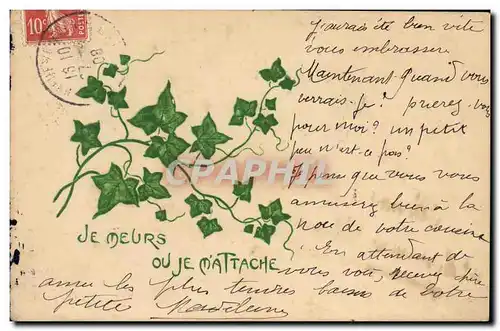 10c
J'aurais été bien vite
vous embrasser.
Maintenant quand vous
verrais-je? prierez-vous
pour moi? un petit
peu n'est-ce pas?
Je pense que vous vous
amuserez bien à la
noce de votre cousine
En attendant de
vous voir, recevez chère
amie les plus tendres baisers de votre
petite Madeleine
CPARAMA
JE MEURS
OU JE M'ATTACHE